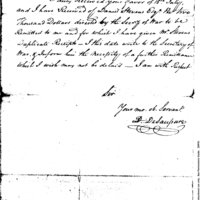 received your favor of
and I have Received of Daniel Stevens Esqr. 
Thousand Dollars directed by the Secry of War to be
Remitted to me and for which I have given Mr Stevens
Duplicate Receipts — I this date wrote to the Secretary of
War, & inform him the necessity of a further Remittance
Which I wish may not be delay'd — I am with Respect
Sir
Your mo. ob. Servant
D. DeSaussure